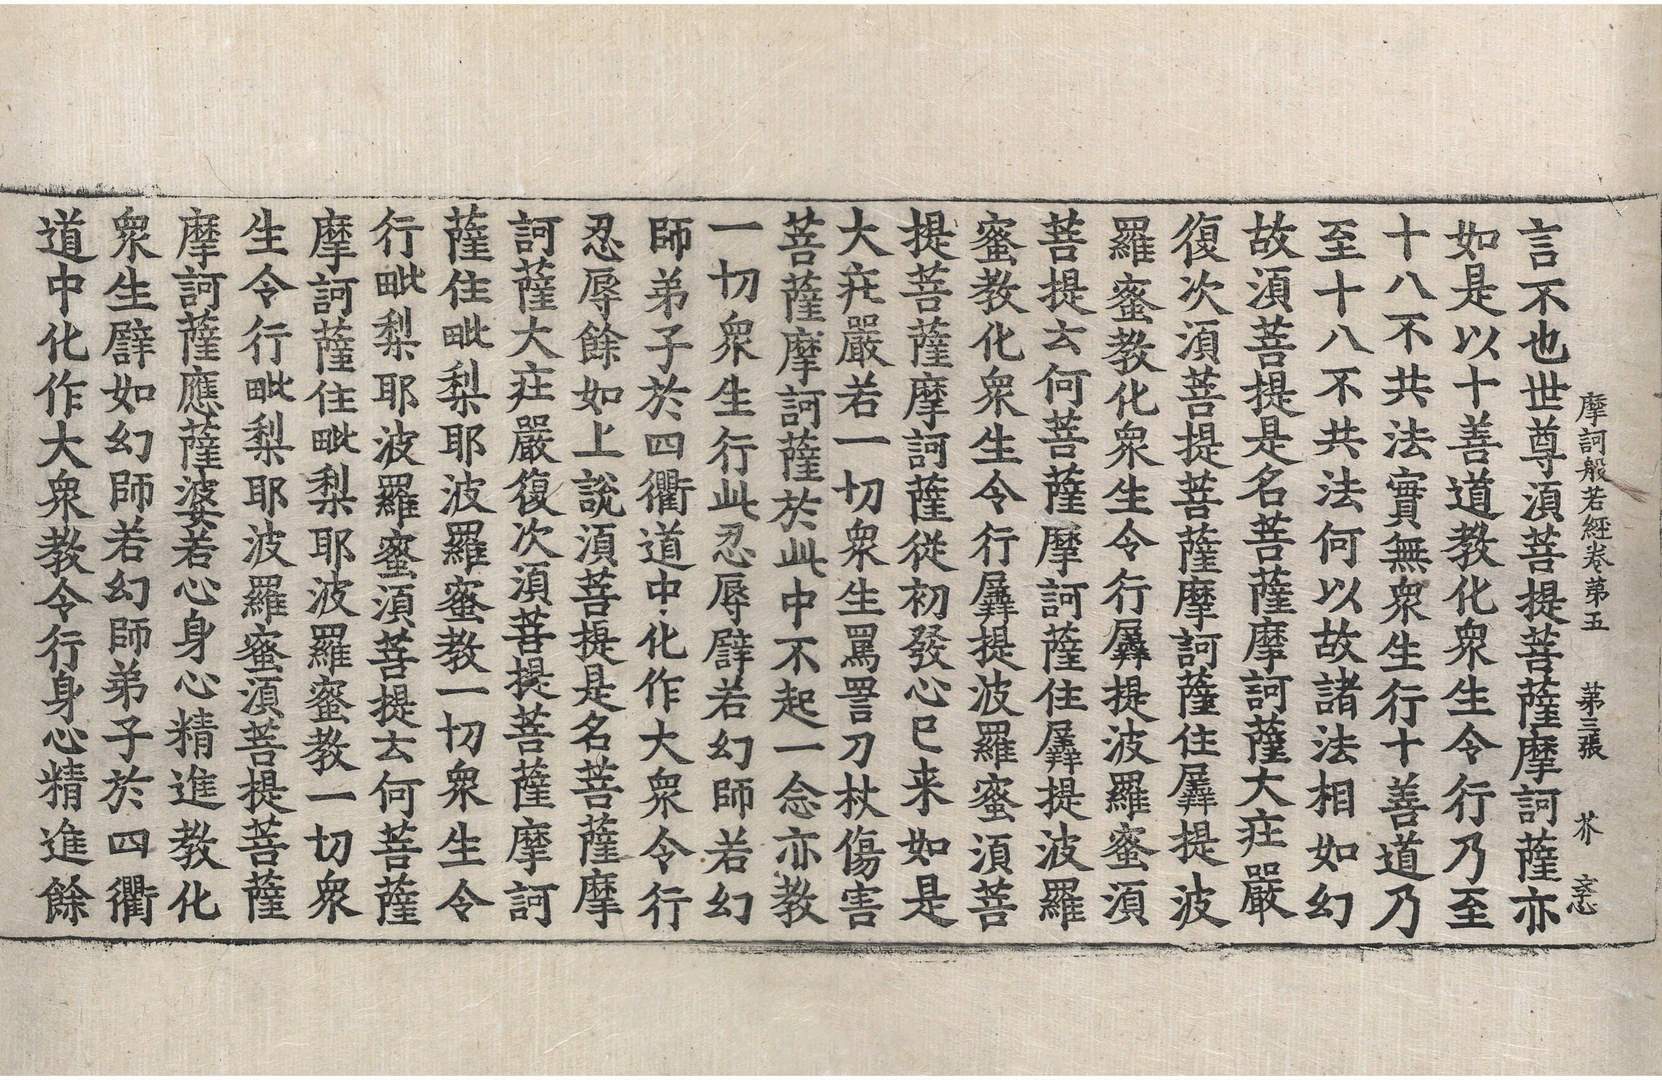 摩訶般若經卷第五 第三張 芥
言不也世尊湏菩提菩薩摩訶薩亦
如是以十善道教化衆生令行乃至
十八不共法實無衆生行十善道乃
至十八不共法何以故諸法相如幻
故湏菩提是名菩薩摩訶薩大庄嚴
復次湏菩提菩薩摩訶薩住羼提波
羅蜜教化衆生令行羼提波羅蜜湏
菩提云何菩薩摩訶薩住羼提波羅
蜜教化衆生令行羼提波羅蜜湏菩
提菩薩摩訶薩從初發心已来如是
大庄嚴若一切衆生罵詈刀杖傷害
菩薩摩訶薩於此中不起一念亦教
一切衆生行此忍辱譬若幻師若幻
師弟子於四衢道中化作大衆令行
忍辱餘如上說湏菩提是名菩薩摩
訶薩大庄嚴復次湏菩提菩薩摩訶
薩住毗梨耶波羅蜜教一切衆生令
行毗梨耶波羅蜜湏菩提云何菩薩
摩訶薩住毗梨耶波羅蜜教一切衆
生令行毗梨耶波羅蜜湏菩提菩薩
摩訶薩應薩婆若心身心精進教化
衆生譬如幻師若幻師弟子於四衢
道中化作大衆教令行身心精進餘